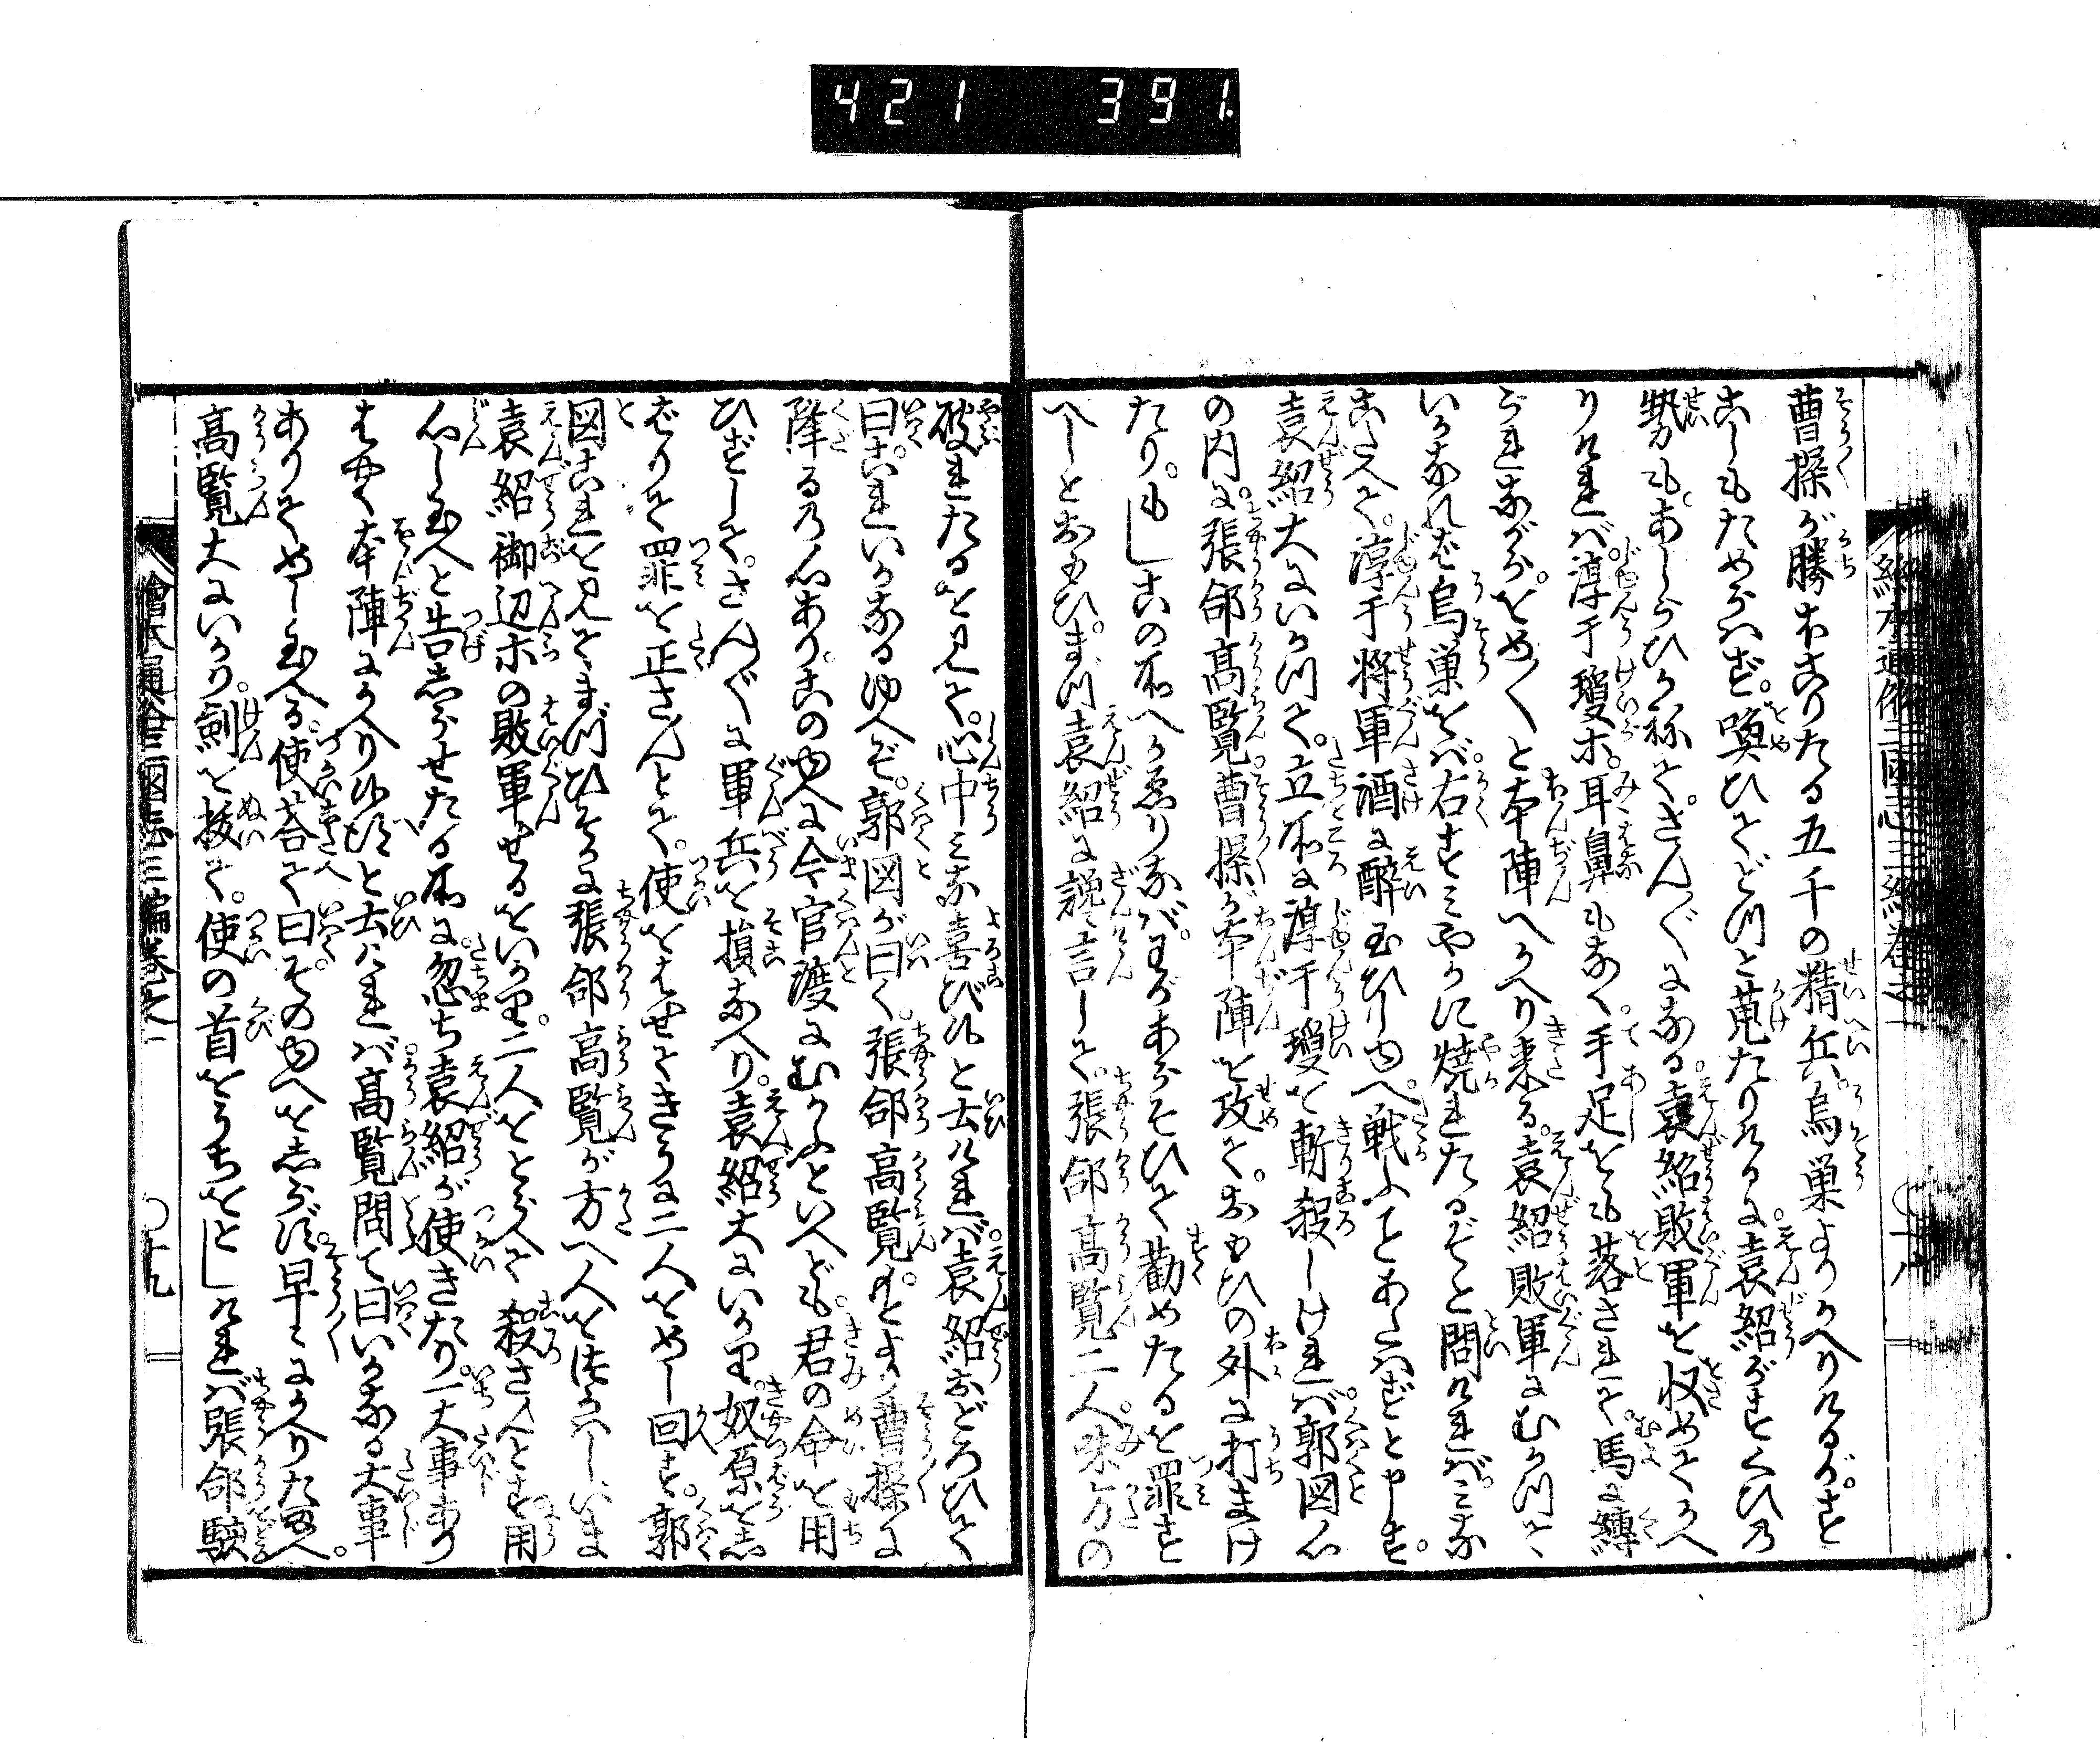 421 391
曹操が勝ほこりたる五千の精兵。烏巣よりかへりけるが。すこ
しもためらはず。喚ひてどつと蒐たりけるに。袁紹がすくひの
勢も。あしらひかねて。さんぐ〵になる。袁紹敗軍を収めてかへ
りければ淳于瓊ホ。耳鼻もなく。手足をも落されて。馬に縛
られながら。をめ〳〵と本陣へかへり来る。袁紹敗軍にむかつて
いかなれば烏巣をば右すみやかに焼れたるぞと問ければ。みな
こたへて。淳于将軍酒に酔玉ひしゆへ。戦ふことあたはずと申す。
袁紹大にいかつて。立所に淳于瓊を斬殺しければ。郭図心
の内に。張郃高覧。曹操が本陣を攻て。おもひの外に打まけ
たり。もしこの所へかゑりなば。わがあらそひて勧めたるを罪す
べしとおもひ。まづ袁紹に讒言して。張郃高覧二人。味方の
破れたるを見て。心中みな喜び候と云ければ。袁紹おどろひて
曰。これいかなるゆへぞ。郭図が曰く。張郃高覧。もとより曹操に
降るの心あり。このゆへに今官渡にむかふといへども。君の命を用
ひずして。さんぐ〵に軍兵を損なへり。袁紹大にいかり。奴原を急
ばりて罪を正さんとて。使をはせてきうに二人をめし回す。郭
図これを見て。まづひそかに張郃高覧が方へ人をつかはし。いま
袁紹御辺ホの敗軍せるをいかり。二人をとらへて殺さんとす。用
心し玉へと告しらせたる所に。忽ち袁紹が使きたり。一大事あり
はやく本陣にかへり候へと云ければ。高覧問て曰いかなる大事
ありてめし玉へる。使答て曰。そのゆへをしらず。早〻にかへりたまへ。
高覧大にいかり。剣を抜て。使の首をうちをとしければ張郃駭
繪本通俗三國志三編卷之一
〇十九